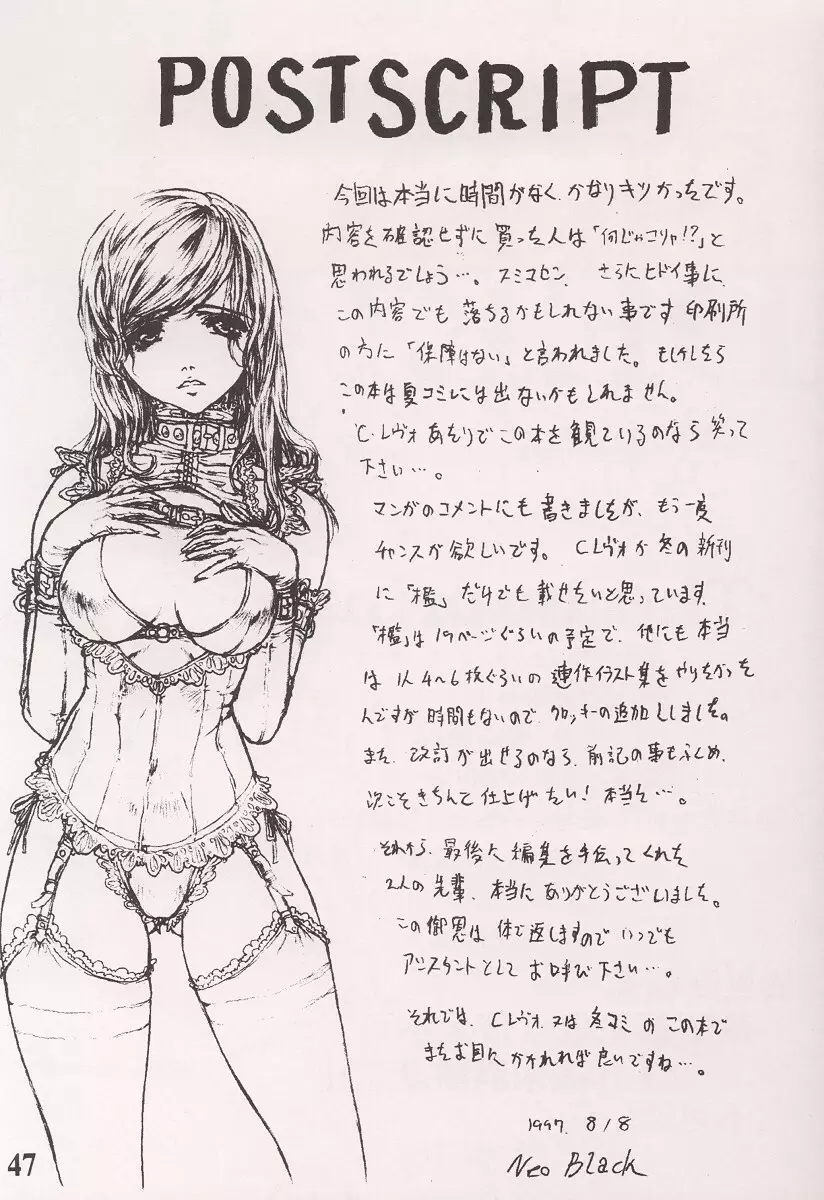 POSTSCRIPT
今回は本当に時間がなく、かなりキツかったです。
内容を確認せずに買った人は「何じゃコリャ!?」と
思われるでしょう…。スミマセン。さらにヒドイ事に、
この内容でも落ちるかもしれない事です。印刷所
の方に「保障はない」と言われました。もしかしたら
この本は夏コミには出ないかもしれません。
C・レヴォあたりでこの本を観ているのなら笑って
下さい…。
マンガのコメントにも書きましたが、もう一度
チャンスが欲しいです。Cレヴォか冬の新刊
に「檻」だけでも載せたいと思っています。
「檻」は19ページぐらいの予定で、他にも本当
は1人4〜6枚ぐらいの連作イラスト集をやりたかった
んですが時間もないので、クロッキーの追加にしました。
また、改訂が出せるのなら、前記の事もふくめ、
次こそきちんと仕上げたい!本当に…。
それから、最後に編集を手伝ってくれた
2人の先輩、本当にありがとうございました。
この御恩は体で返しますのでいつでも
アシスタントとしてお呼び下さい…。
それでは、Cレヴォ又は冬コミのこの本で
またお目にかかれれば良いですね…。
1997. 8/8
Neo Black
47